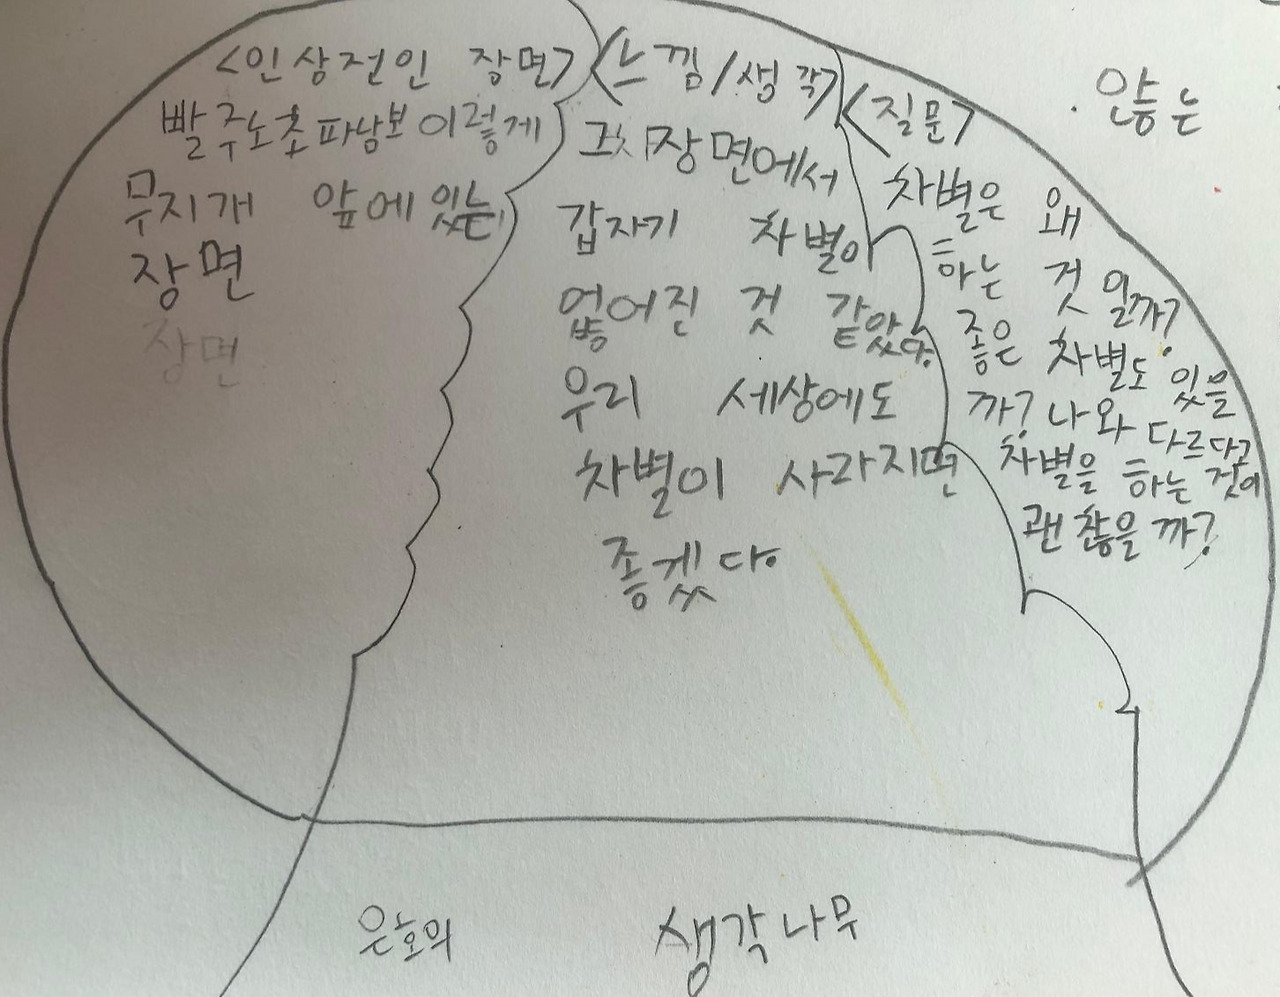 <인상전인 장면>
빨주노초파남보 이렇게
무지개 앞에 있는
장면
장면
<느낌/생각>
그 장면에서
갑자기 차별이
없어진 것 같았다.
우리 세상에도
차별이 사라지면
좋겠다.
<질문>
차별은 왜
하는 것 일까?
좋은 차별도 있을
까? 나와 다르다고
차별을 하는 것이
괜찮을 까?
않는
은호의 생각나무